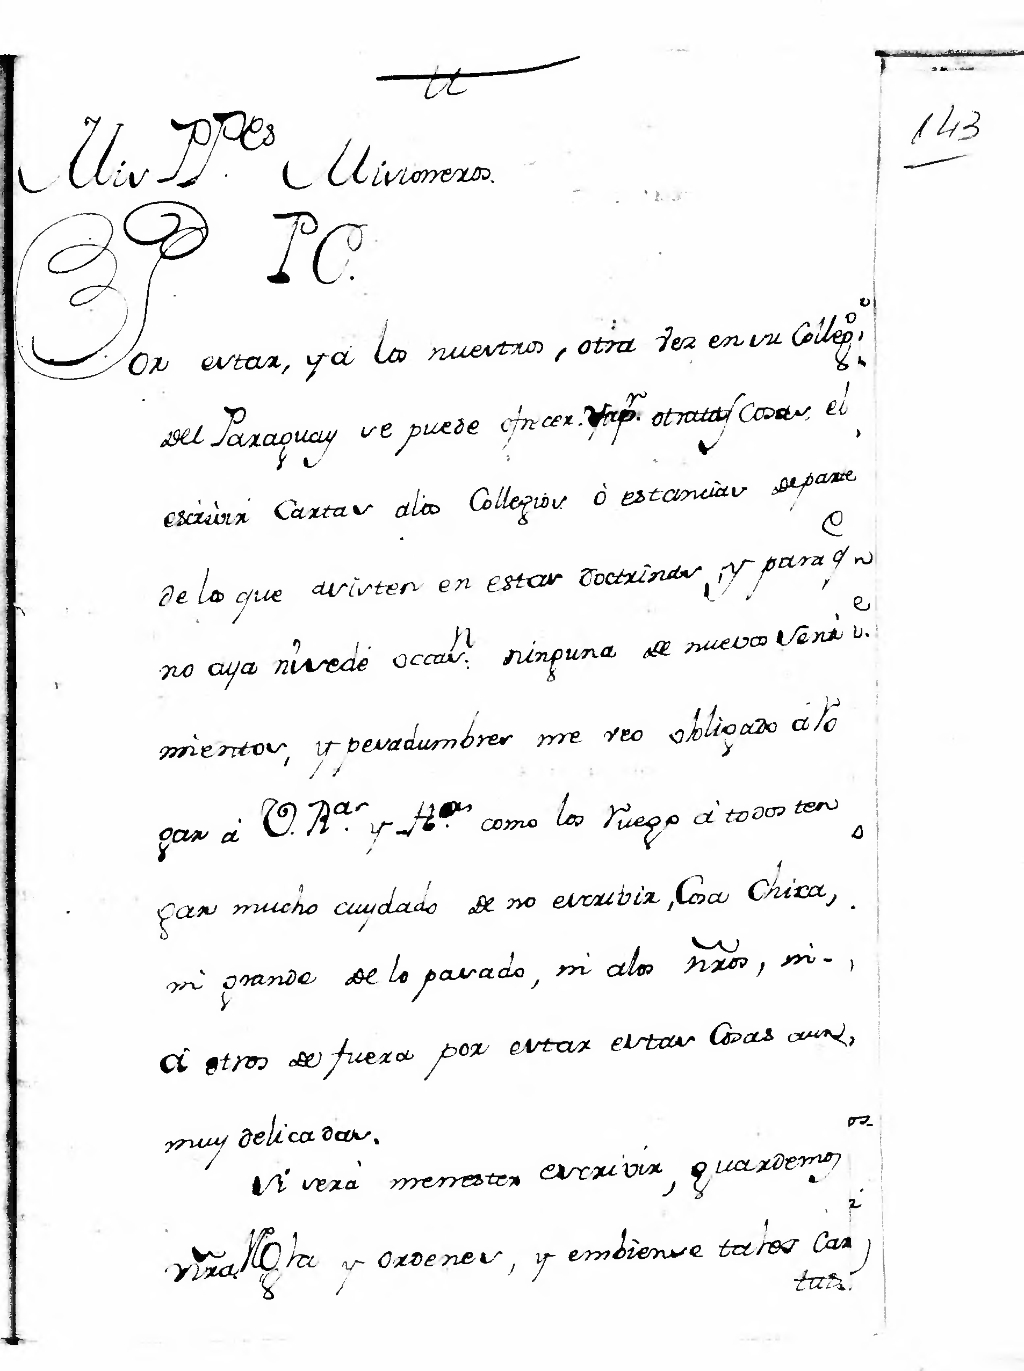 143
Mis PP.es Missioneros.
P C.
Por estar, ya los nuestros, otra vez en su Collegº
del Paraguay se puede ofrecer. otratas Cosas, el
escrivir Cartas alos Collegios ò estancias departe
de los que asisten en estas Doctrinas, y para qe
no aya ni sede occasn. ninguna de nuevos senti
mientos, y pesadumbres me veo obligado á ro
gar á V. Ras. y Has. como los ruego á todos ten
gan mucho cuydado de no escribir, Cosa Chica,
ni grande de lo pasado, ni alos nros, ni-
á otros de fuera por estar estas Cosas aun,
muy delicadas.
Si será menester escrivir, guardemos
nra Rgla y ordenes, y embiense tales Car
tas.